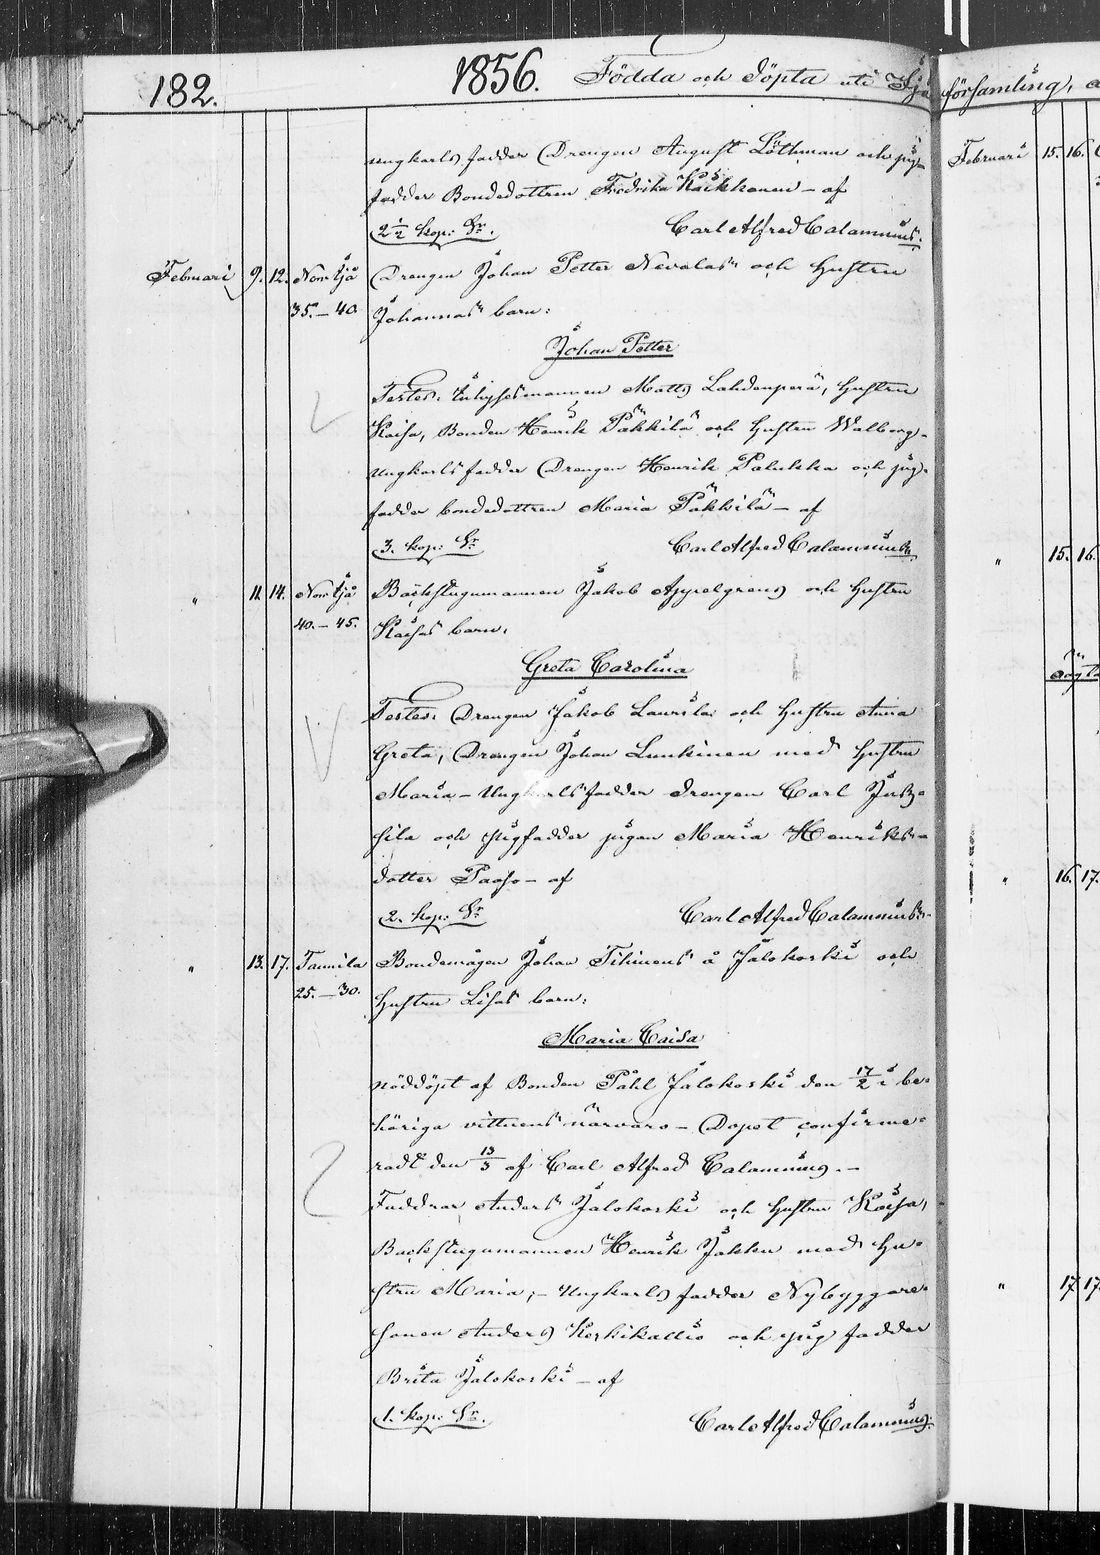 182. 1856. Födda och Döpta uti
församling,
ungkarls fadder Drengen August Löthman och pig-
fadder Bondedottren Fredrika Kaikkonen – af
2 1/2 kop: Sr. Carl Alfred Calamnius.
Februari 9. 12. Norrtjå Drengen Johan Petter Nevalas och hustru
35.–40. Johannas barn:
Johan Petter
Testes: Inhysesmannen Matts Lahdenperä, hustru
Kaisa, Bonden Henrik Päkkilä och hustru Walborg-
Ungkarls fadder Drengen Henrik Palukka och pig-
fadder bondedottren Maria Päkkilä – af
3. kop: Sr. Carl Alfred Calamnius
" 11. 14. Norrtjå Backstugumannen Jakob Appelgrens och hustru
40.–45. Kaisas barn:
Greta Carolina
Testes: Drengen Jakob Laurila och hustru Anna
Greta, Drengen Johan Lunkinen med hustru
Maria – Ungkarls fadder drengen Carl
och pigfadder pigan Maria Henriks-
dotter Paaso – af
2. kop: Sr. Carl Alfred Calamnius.
" 13. 17. Tannila Bondemågen Johan Tihinens å Jälokoski och
25.–30. hustru Lisas barn:
Maria Caisa
nöddöpt af Bonden Påhl Jälokoski den 17/2 i be-
höriga vittnens närvaro – Dopet confirme-
radt den 13/3 af Carl Alfred Calamnius. –
Faddrar Anders Jälokoski och hustru Kaisa,
Backstugumannen Henrik Jakku med hu-
stru Maria, – Ungkarls fadder Nybyggare-
sonen Anders Keskikallio och pig fadder
Brita Jälokoski – af
1. kop: Sr. Carl Alfred Calamnius.
Februari 15. 16.
" 15. 16.
" 16. 17.
" 17. 17.